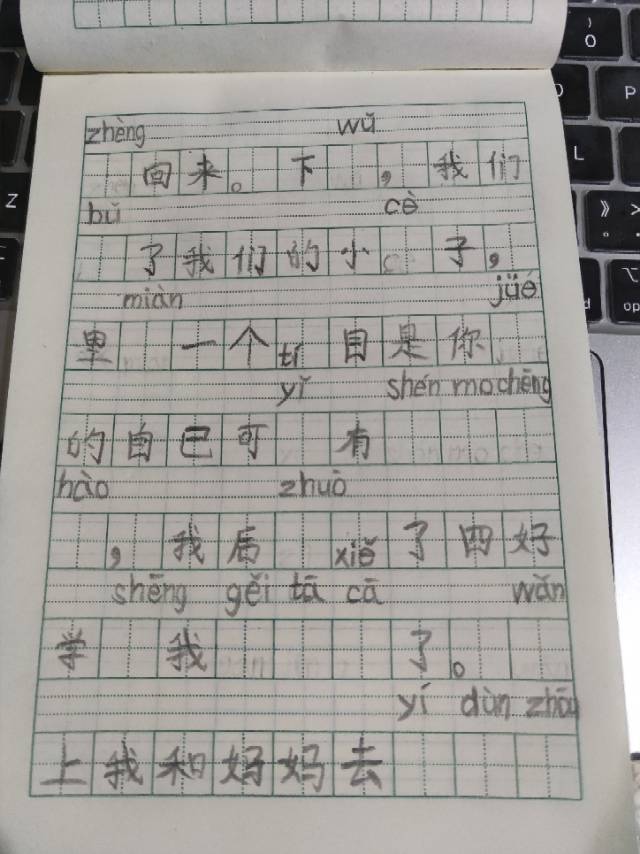 zhèng wǔ
回来。下,我们
bǔ cè
了我们的小子,
miàn jüé
里一个tí目是你
yǐ shén mo chēng
的自己可有
hào zhuò
,我后xiě了四好
shēng gěi tā cā wǎn
学我了。
yí dùn zhōu
上我和妈妈去